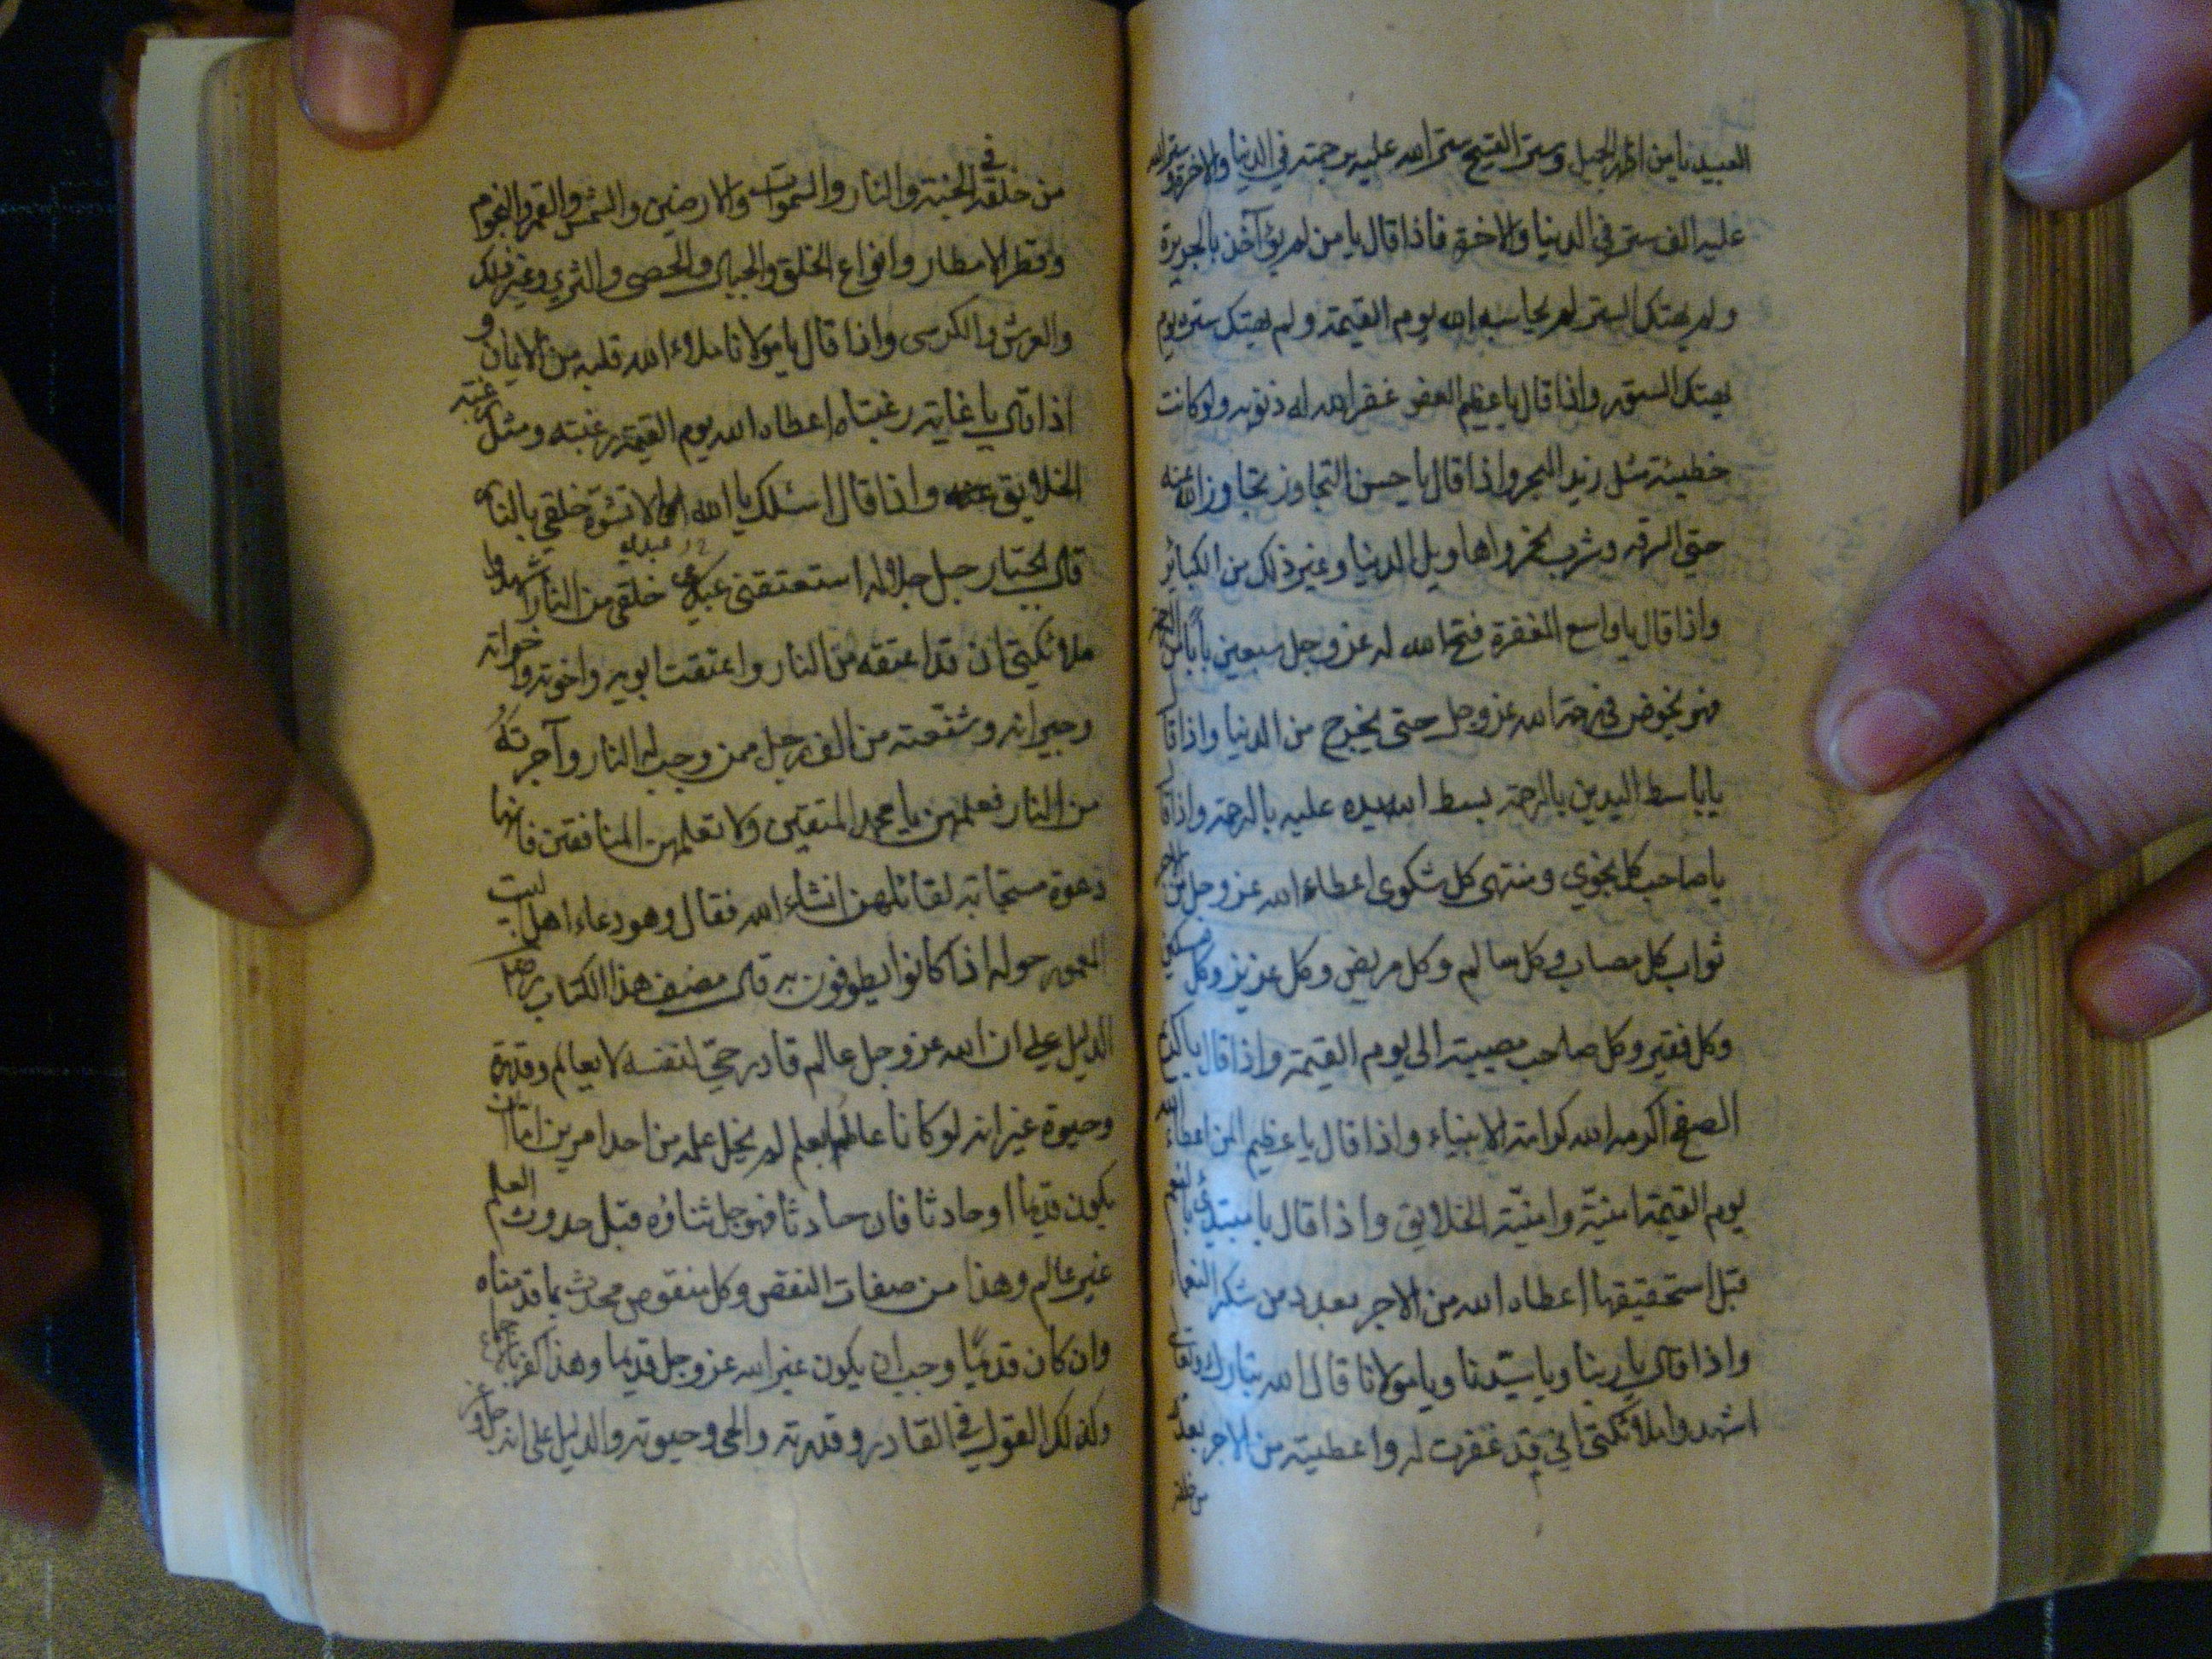 العبيد يا من اظهر الجميل وستر القبيح ستر الله عليه برحمته في الدنيا والاخرة وستر الله
عليه الف ستر في الدنيا والاخرة فاذا قال يا من لم يؤآخذ بالجريرة
ولم يهتك الستر لم يحاسبه الله يوم القيمة ولم يهتك ستره يوم
يهتك الستور واذا قال يا عظيم العفو غفر الله له ذنوبه ولو كانت
خطيئة مثل زبد البحر واذا قال يا حسن التجاوز تجاوز الله عنه
حتى السرقة وشرب الخمر واهاويل الدنيا وغير ذلك من الكبائر
واذا قال يا واسع المغفرة فتح الله له عز وجل سبعين بابًا من الرحمة
فهو يخوض في رحمة الله عز وجل حتى يخرج من الدنيا واذا قال
يا باسط اليدين بالرحمة بسط الله يده عليه بالرحمة واذا قال
يا صاحب كل نجوي ومنتهى كل شكوى اعطاه الله عز وجل من الاجر
ثواب كل مصاب وكل سالم وكل مريض وكل عزيز وكل مسكين
وكل فقير وكل صاحب مصيبة الى يوم القيمة واذا قال يا كريم
الصفح اكرمه الله كرامة الانبياء واذا قال يا عظيم المن اعطاه الله
يوم القيمة امنيّته وامنيّة الخلايق واذا قال يا مبتدئ بالنعم
قبل استحقيقها اعطاه الله من الاجر بعدد من شكر النعماء
واذا قال يا ربنا ويا سيّدنا ويا مولانا قال الله تبارك وتعالى
اشهدوا ملائكتي اني قد غفرت له واعطيته من الاجر بعدد
من خلقه
من خلقته في الجنة والنار والسموات والارضين والشمس والقمر والنجوم
وقطر الامطار وانواع الخلق والجبال والحصى والثري وغير ذلك
والعرش والكرسى واذا قال يا مولانا ملاء الله قلبه من الايمان و
اذا قال يا غاية رغبتاه اعطاه الله يوم القيمة رغبته ومثل رغبة
الخلايق واذا قال اسئلك يا الله ان لا تشوّه خلقي بالنار
قال الجبار جل جلاله استعتقنى عبدي خلقى من النار اشهدوا
ملائكتي ان قد اعتقه من النار واعتقت ابويه واخوته واخواته
وجيرانه وشفّعته من الف رجل ممن وجب له النار وآجرته
من النار فعلمهن يا محمد المتقين ولا تعلمهن المنافقين فانها
دعوة مستجابة لقائلهن انشاء الله فقال وهو دعاء اهل البيت
المعمور حوله اذا كانوا يطوفون به قال مصنف هذا الكتاب رضى
الدليل على ان الله عز وجل عالم قادر حي لنفسه لا بعلم وقدرة
وحيوة غيرانه لو كانا عالما بعلم لم يخل علمه من احد امرين اما ان
يكون قديما او حادثا فان حادثا فهو جل ثناؤه قبل حدوث العلم
غير عالم وهذا من صفات النقص وكل منقوص محدث بما قدمناه
وان كان قديمًا وجب ان يكون غير الله عز وجل قديما وهذا كفر بالاجماع
وكذلك القول في القادر وقدرته والحي وحيوته والدليل على انه عز وجل